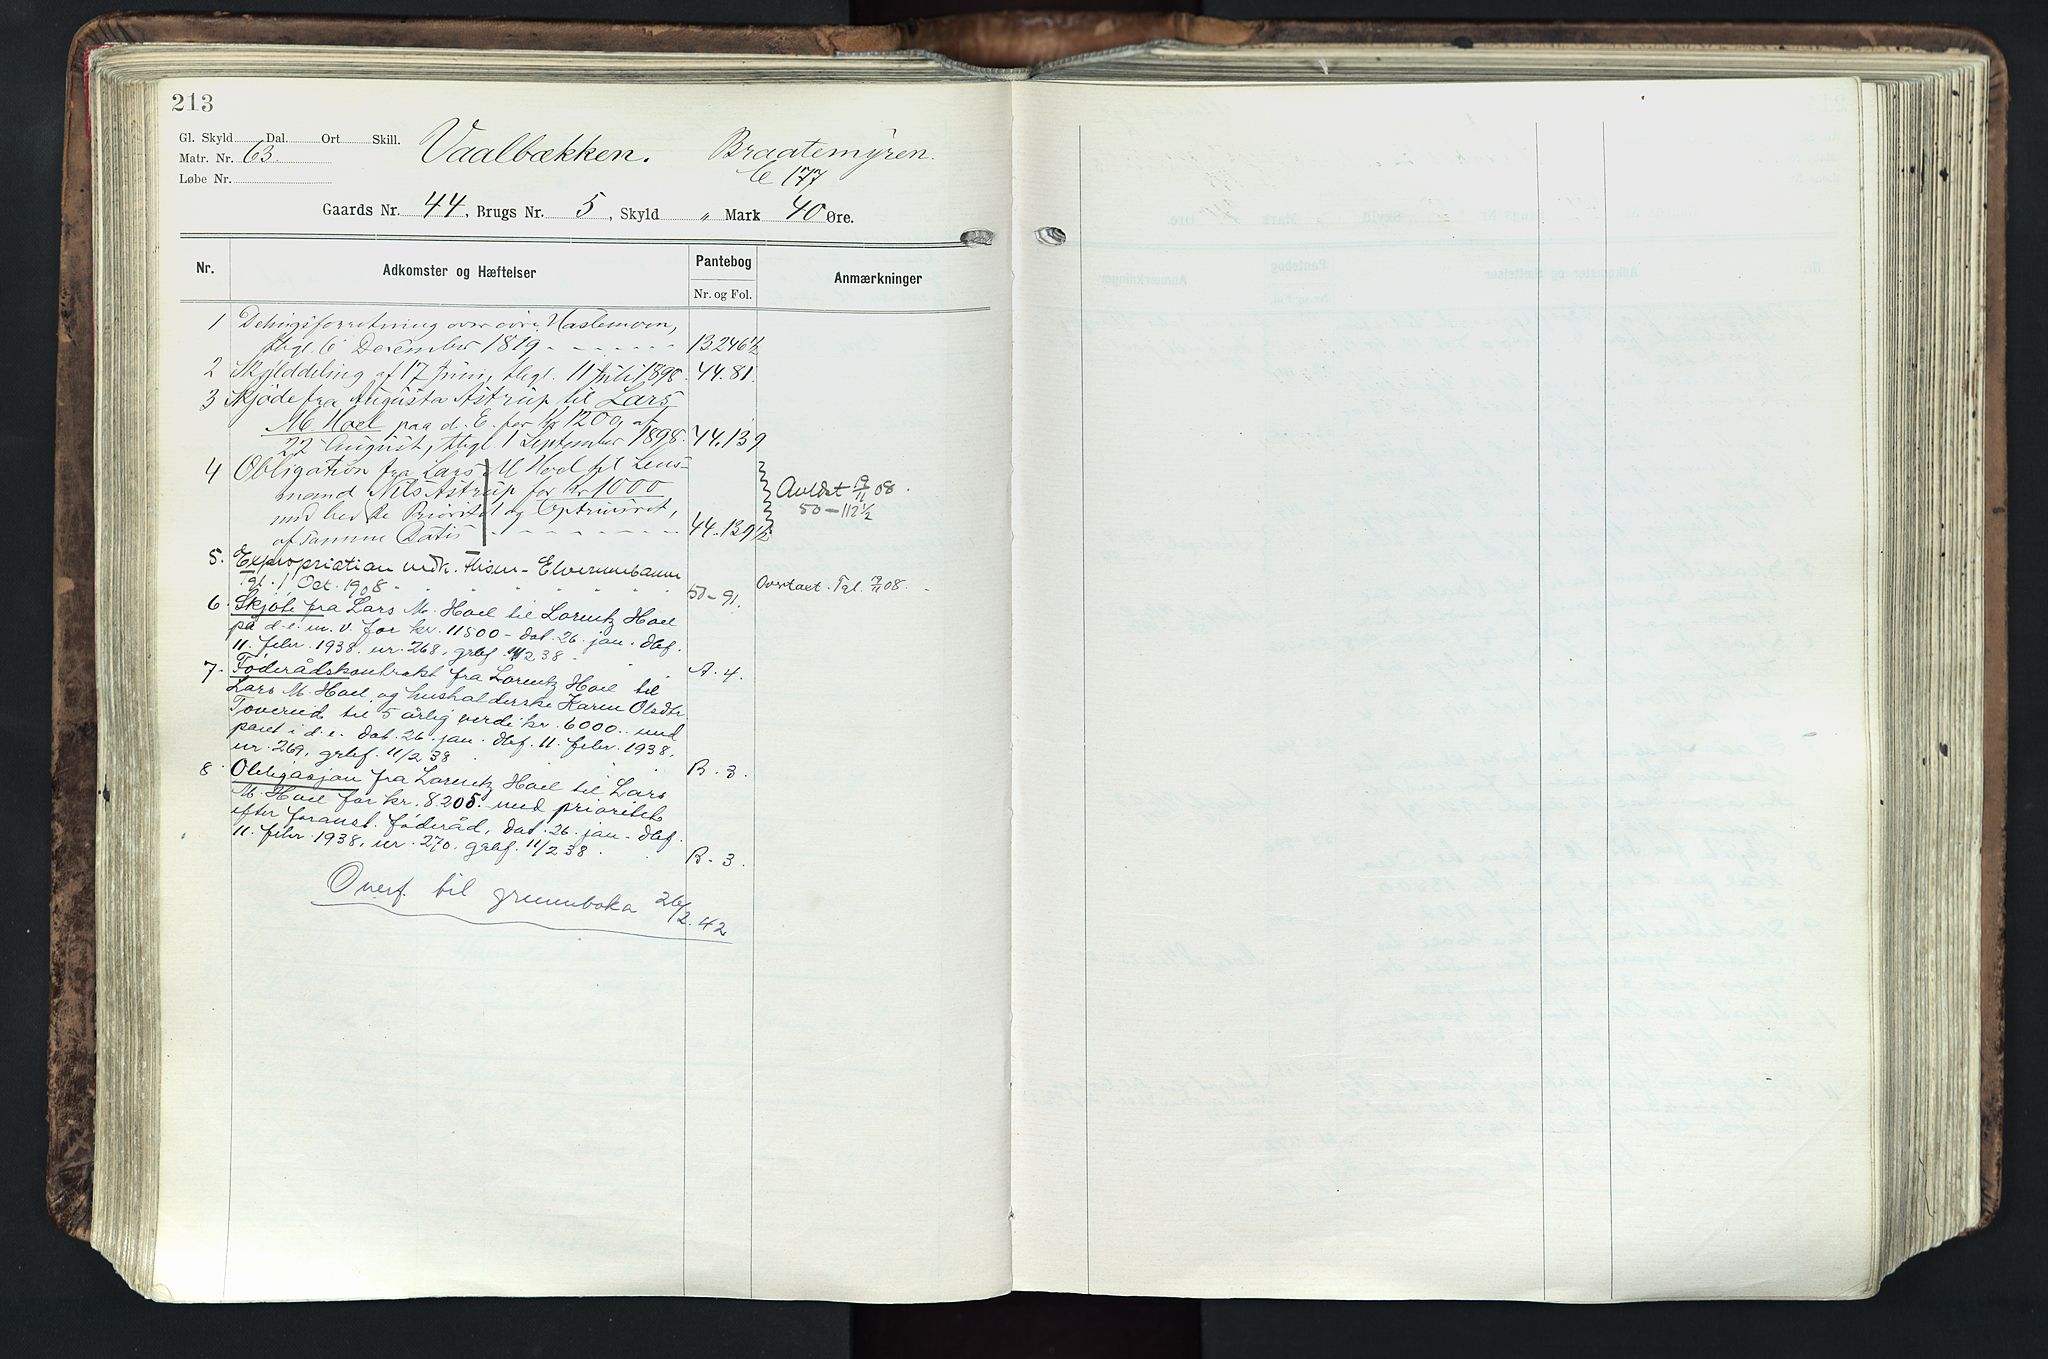 213
Gl. Skyld Dal. Ort Skill.
Matr. Nr. 63
Løbe Nr.
Vaalbækken. Braatemyren.
177
Gaards Nr. 44, Brugs Nr. 5, Skyld " Mark 40 Øre.
Nr. Adkomster og Hæftelser Pantebog Anmærkninger
Nr. og Fol.
1 Delingsforretning over Haslemoen,
thgl. 6 December 1819 - - - - - - 13.246½
2 Skylddeling af 17 Juni, thgl. 11 Juli 1898 44.81.
3 Skjøde fra Augusta Astrup til Lars
M Hoel paa d. E. for Kr 1200, af
22 August, thgl 1 September 1898. 44.139
4 Obligation fra Lars M Hoel til Lens-
mand Nils Astrup for Kr 1000
med bedste Prioritet og Opteiesret,
af samme Datis - - - - - - 44.139½
Avldst 19/11 08.
50-112½
5. Expropriation vedk. Flisen-Elverumbanen
Tgl. 1 Oct. 1908 " " " " " 50-91.
Tgl. 19/11 08.
6. Skjøte fra Lars M. Hoel til Lorentz Hoel
på d.e. m. v. for kr. 11500 - dat. 26. jan. dbf.
11. febr. 1938, nr. 268, grbf. 11/2 38 A. 4.
7. Føderådskontrakt fra Lorentz Hoel til
Lars M. Hoel og husholderske Karen Olsdtr.
Toverud til 5 årlig verdi kr. 6000.. med
pant i d. e. dat. 26. jan. dbf. 11. febr. 1938,
nr. 269, grbf. 11/2 38 B. 3.
8 Obligasjon fra Lorentz Hoel til Lars
M. Hoel for kr. 8.205. med prioritet
efter foranst. føderåd, dat. 26. jan. dbf.
11. febr. 1938, nr. 270, grbf. 11/2 38. B. 3.
Overf. til grunnboka 26/2.42